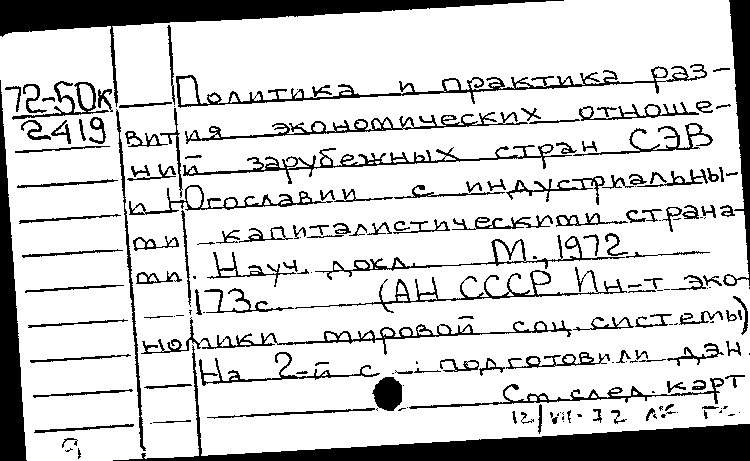 72-50к
2419
Политика и практика раз-
вития экономических отноше-
ний зарубежных стран СЭВ
и Югославии с индустриальны-
ми капиталистическими страна-
ми. Науч. докл. М., 1972.
173с. (АН СССР Ин-т эко-
номики мировой соц. системы)
На 2-й с.: подготовили д.э.н.
См. след. карт
12/VII-72
9